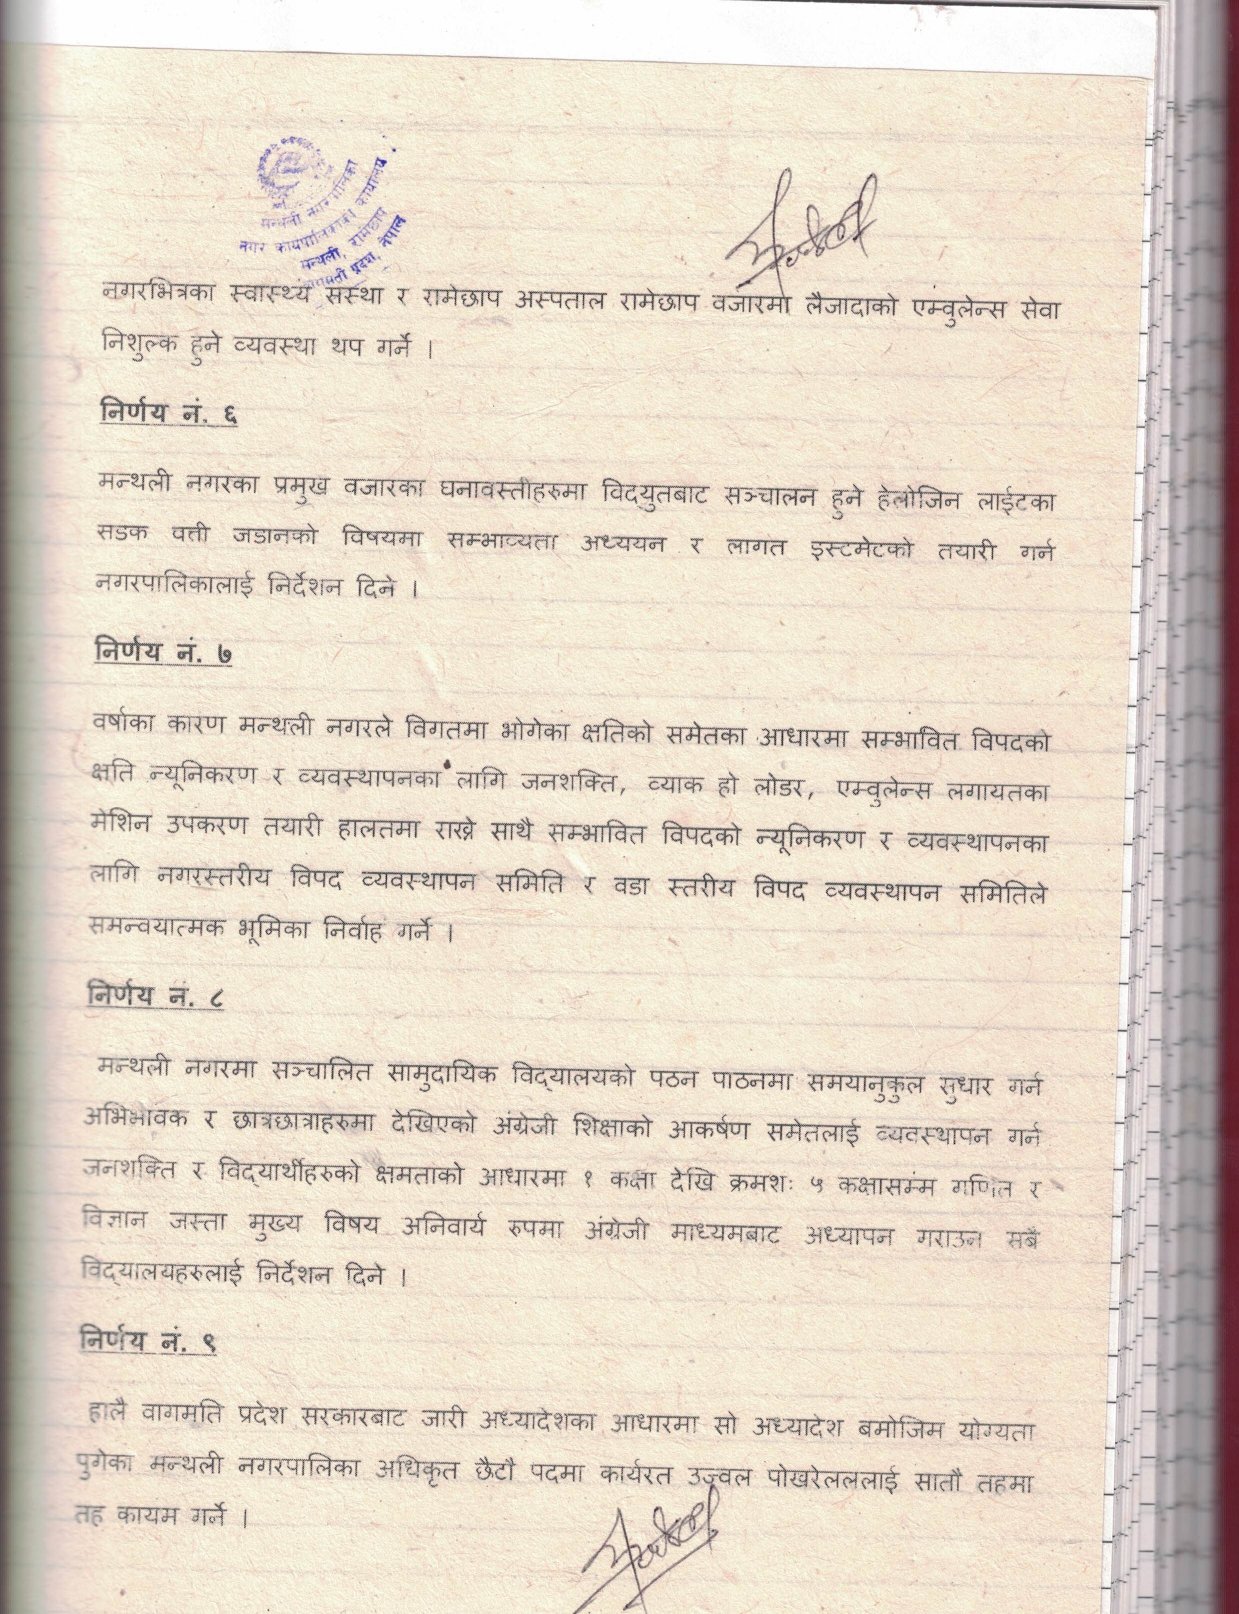 मन्थली नगरपालिका
नगर कार्यपालिकाको कार्यालय
मन्थली, रामेछाप
बागमती प्रदेश, नेपाल
नगरभित्रका स्वास्थ्य संस्था र रामेछाप अस्पताल रामेछाप वजारमा लैजादाको एम्वुलेन्स सेवा
निशुल्क हुने व्यवस्था थप गर्ने ।
निर्णय नं. ६
मन्थली नगरका प्रमुख वजारका घनावस्तीहरुमा विद्युतबाट सञ्चालन हुने हेलोजिन लाईटका
सडक वत्ती जडानको विषयमा सम्भाव्यता अध्ययन र लागत इस्टमेटको तयारी गर्न
नगरपालिकालाई निर्देशन दिने ।
निर्णय नं. ७
वर्षाका कारण मन्थली नगरले विगतमा भोगेका क्षतिको समेतका आधारमा सम्भावित विपदको
क्षति न्यूनिकरण र व्यवस्थापनका लागि जनशक्ति, व्याक हो लोडर, एम्वुलेन्स लगायतका
मेशिन उपकरण तयारी हालतमा राख्ने साथै सम्भावित विपदको न्यूनिकरण र व्यवस्थापनका
लागि नगरस्तरीय विपद व्यवस्थापन समिति र वडा स्तरीय विपद व्यवस्थापन समितिले
समन्वयात्मक भूमिका निर्वाह गर्ने ।
निर्णय नं. ८
मन्थली नगरमा सञ्चालित सामुदायिक विद्यालयको पठन पाठनमा समयानुकुल सुधार गर्न
अभिभावक र छात्रछात्राहरुमा देखिएको अंग्रेजी शिक्षाको आकर्षण समेतलाई व्यवस्थापन गर्न
जनशक्ति र विद्यार्थीहरुको क्षमताको आधारमा १ कक्षा देखि क्रमशः ५ कक्षासम्म गणित र
विज्ञान जस्ता मुख्य विषय अनिवार्य रुपमा अंग्रेजी माध्यमबाट अध्यापन गराउन सबै
विद्यालयहरुलाई निर्देशन दिने ।
निर्णय नं. ९
हालै वागमति प्रदेश सरकारबाट जारी अध्यादेशका आधारमा सो अध्यादेश बमोजिम योग्यता
पुगेका मन्थली नगरपालिका अधिकृत छैटौ पदमा कार्यरत उज्वल पोखरेलललाई सातौ तहमा
तह कायम गर्ने ।